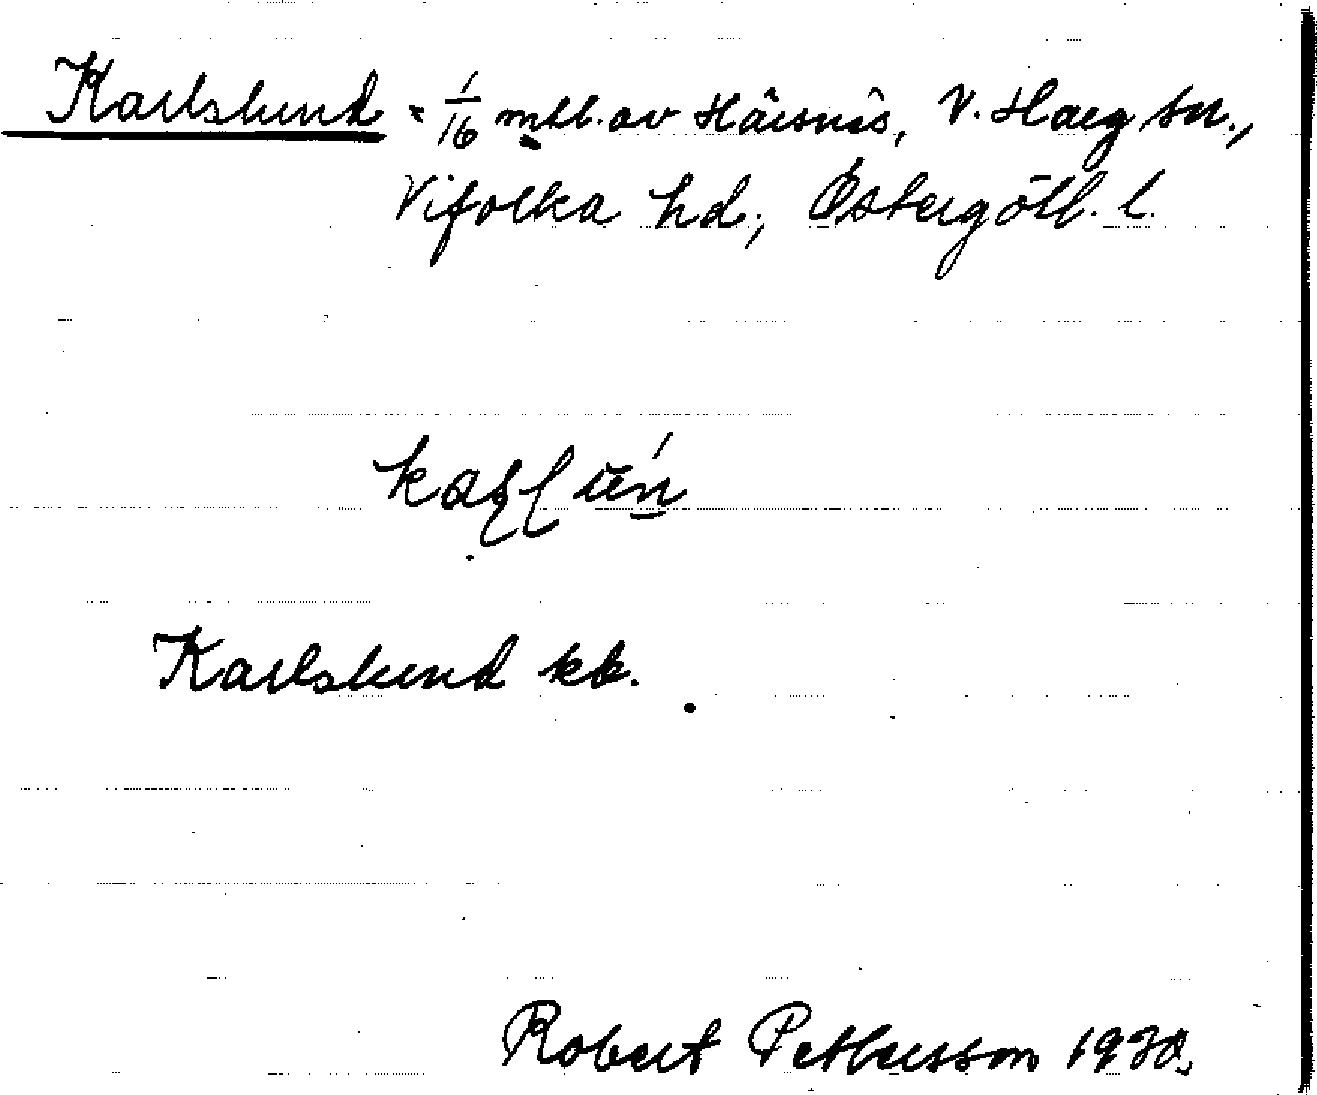 Karlslund = 1/16 mtl. av Hårsnäs, V. Harg sn.,
Vifolka hd., Östergötl. l.
Karlslund kb.
Robert Pettersson 1930.